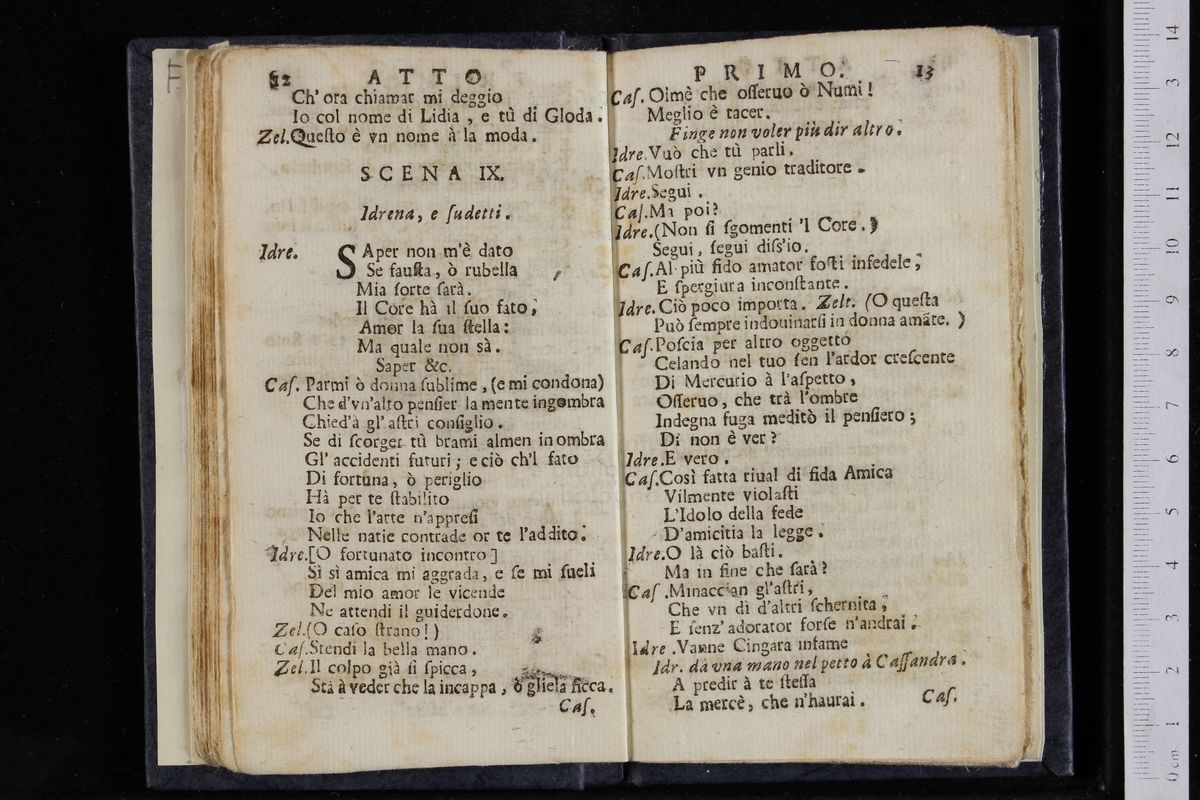 12 ATTO
Ch' ora chiamar mi deggio
Io col nome di Lidia, e tù di Gloda.
Zel. Queſto è vn nome à la moda.
SCENA IX.
Idrena, e ſudetti.
Idre. SAper non m'è dato
Se fauſta, ò rubella
Mia ſorte ſarà.
Il Core hà il ſuo fato;
Amor la ſua ſtella:
Ma quale non sà.
Saper &c.
Caſ. Parmi ò donna ſublime, (e mi condona)
Che d'vn'alto penſier la mente ingombra
Chied'à gl'aſtri conſiglio.
Se di ſcorger tù brami almen in ombra
Gl' accidenti futuri; e ciò ch'l fato
Di fortuna, ò periglio
Hà per te ſtabilito
Io che l'arte n'appreſi
Nelle natie contrade or te l'addito.
Idre. [O fortunato incontro]
Sì sì amica mi aggrada, e ſe mi ſueli
Del mio amor le vicende
Ne attendi il guiderdone.
Zel. (O caſo ſtrano!)
Caſ. Stendi la bella mano.
Zel. Il colpo già ſi ſpicca,
Stà à veder che la incappa, ò gliela ficca.
Caſ.
PRIMO. 13
Caſ. Oimè che oſſeruo ò Numi!
Meglio è tacer.
Finge non voler più dir altro.
Idre. Vuò che tù parli.
Caſ. Moſtri vn genio traditore.
Idre. Segui.
Caſ. Ma poi?
Idre. (Non ſi ſgomenti 'l Core.)
Segui, ſegui diſs'io.
Caſ. Al più fido amator foſti infedele;
E ſpergiura inconſtante.
Idre. Ciò poco importa. Zelt. (O queſta
Può ſempre indouinarſi in donna amãte.)
Caſ. Poſcia per altro oggetto
Celando nel tuo ſen l'ardor creſcente
Di Mercurio à l'aſpetto,
Oſſeruo, che trà l'ombre
Indegna fuga meditò il penſiero;
Di non è ver?
Idre. E vero.
Caſ. Così fatta riual di fida Amica
Vilmente violaſti
L'Idolo della fede
D'amicitia la legge.
Idre. O là ciò baſti.
Ma in fine che ſarà?
Caſ. Minaccian gl'aſtri,
Che vn dì d'altri ſchernita,
E ſenz' adorator forſe n'andrai.
Idre. Vanne Cingara infame
Idr. dà vna mano nel petto à Caſſandra.
A predir à te ſteſſa
La mercè, che n'haurai.
Caſ.
F
0 cm 1 2 3 4 5 6 7 8 9 10 11 12 13 14